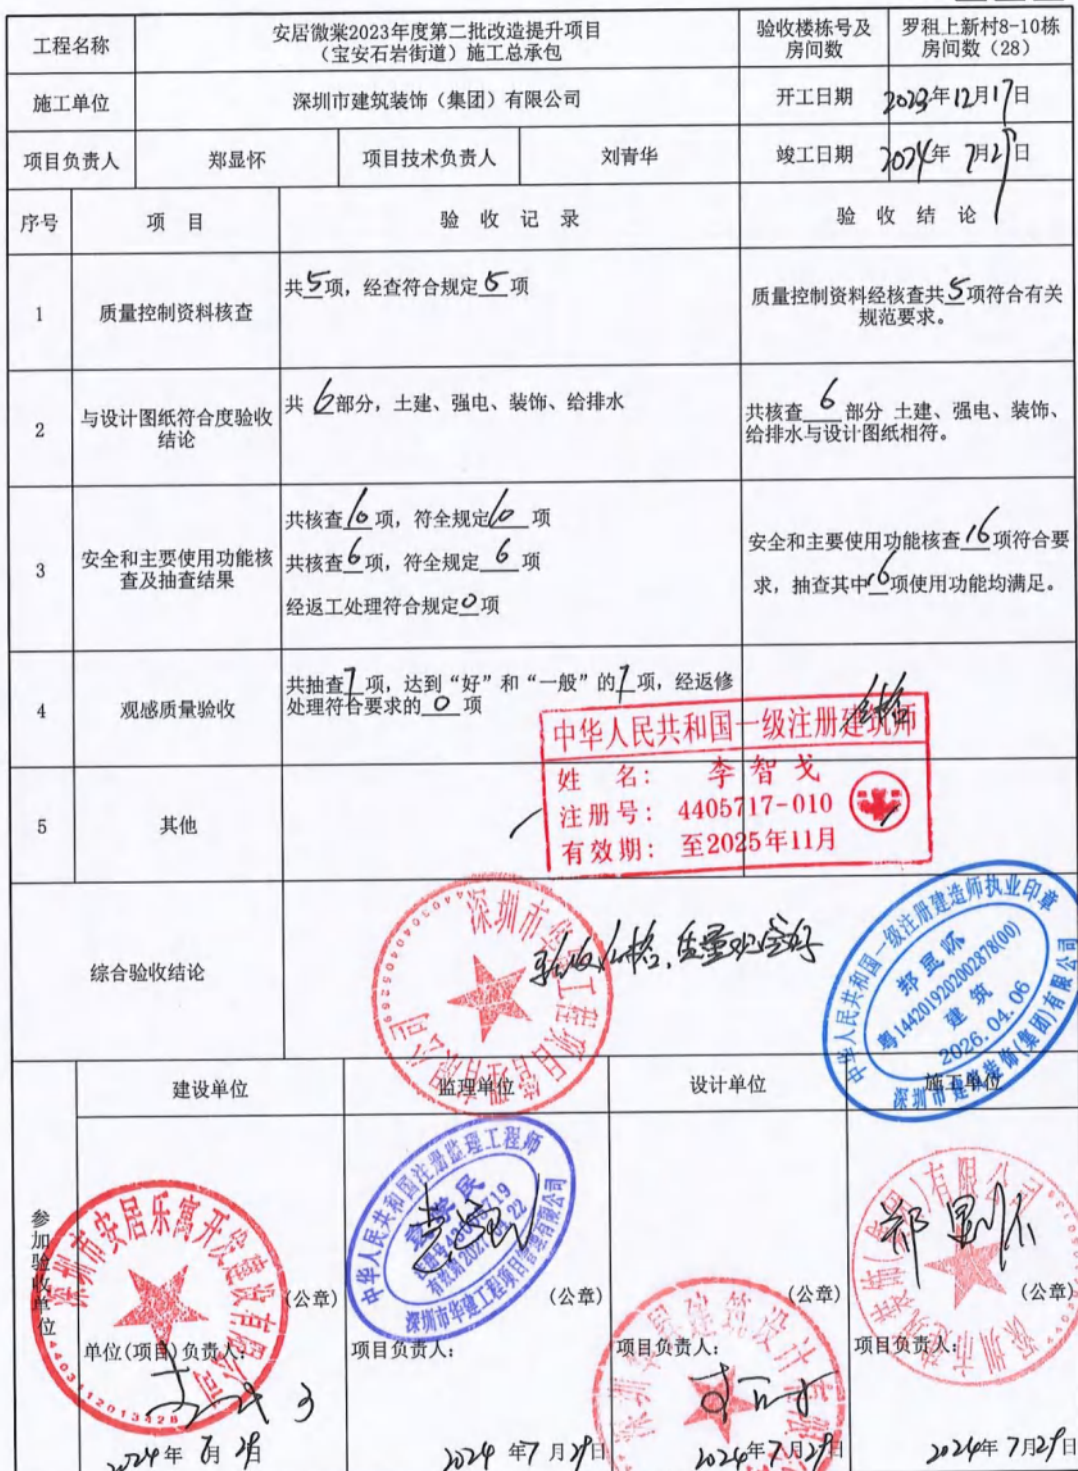 工程名称
安居微棠2023年度第二批改造提升项目
（宝安石岩街道）施工总承包
验收楼栋号及
房间数
罗租上新村8-10栋
房间数（28）
施工单位
深圳市建筑装饰（集团）有限公司
开工日期
2023年12月17日
项目负责人
郑显怀
项目技术负责人
刘青华
竣工日期
2024年 7月29日
序号
项 目
验 收 记 录
验 收 结 论
1
质量控制资料核查
共5项，经查符合规定5项
质量控制资料经核查共5项符合有关
规范要求。
2
与设计图纸符合度验收
结论
共 6部分，土建、强电、装饰、给排水
共核查 6 部分 土建、强电、装饰、
给排水与设计图纸相符。
3
安全和主要使用功能核
查及抽查结果
共核查10项，符全规定10 项
共核查6项，符全规定 6 项
经返工处理符合规定0项
安全和主要使用功能核查16项符合要
求，抽查其中16项使用功能均满足。
4
观感质量验收
共抽查7项，达到“好”和“一般”的7项，经返修
处理符合要求的 0 项
合格
中华人民共和国一级注册建筑师
姓 名： 李智戈
注册号： 4405717-010
有效期： 至2025年11月
5
其他
综合验收结论
验收合格，质量观感好
深圳市华建工程项目管理有限公司
中华人民共和国一级注册建造师执业印章
郑显怀
粤1442019202002878(00)
建筑
2026.04.06
深圳市建筑装饰(集团)有限公司
参加验收单位
建设单位
监理单位
设计单位
施工单位
深圳市安居乐寓开发建设有限公司
4403112013428
(公章)
单位(项目)负责人:
2024年 7月 29日
中华人民共和国注册监理工程师
深圳市华建工程项目管理有限公司
(公章)
项目负责人:
2024 年7 月29日
(公章)
项目负责人:
2024年7月29日
郑显怀
(公章)
项目负责人:
2024年 7月29日